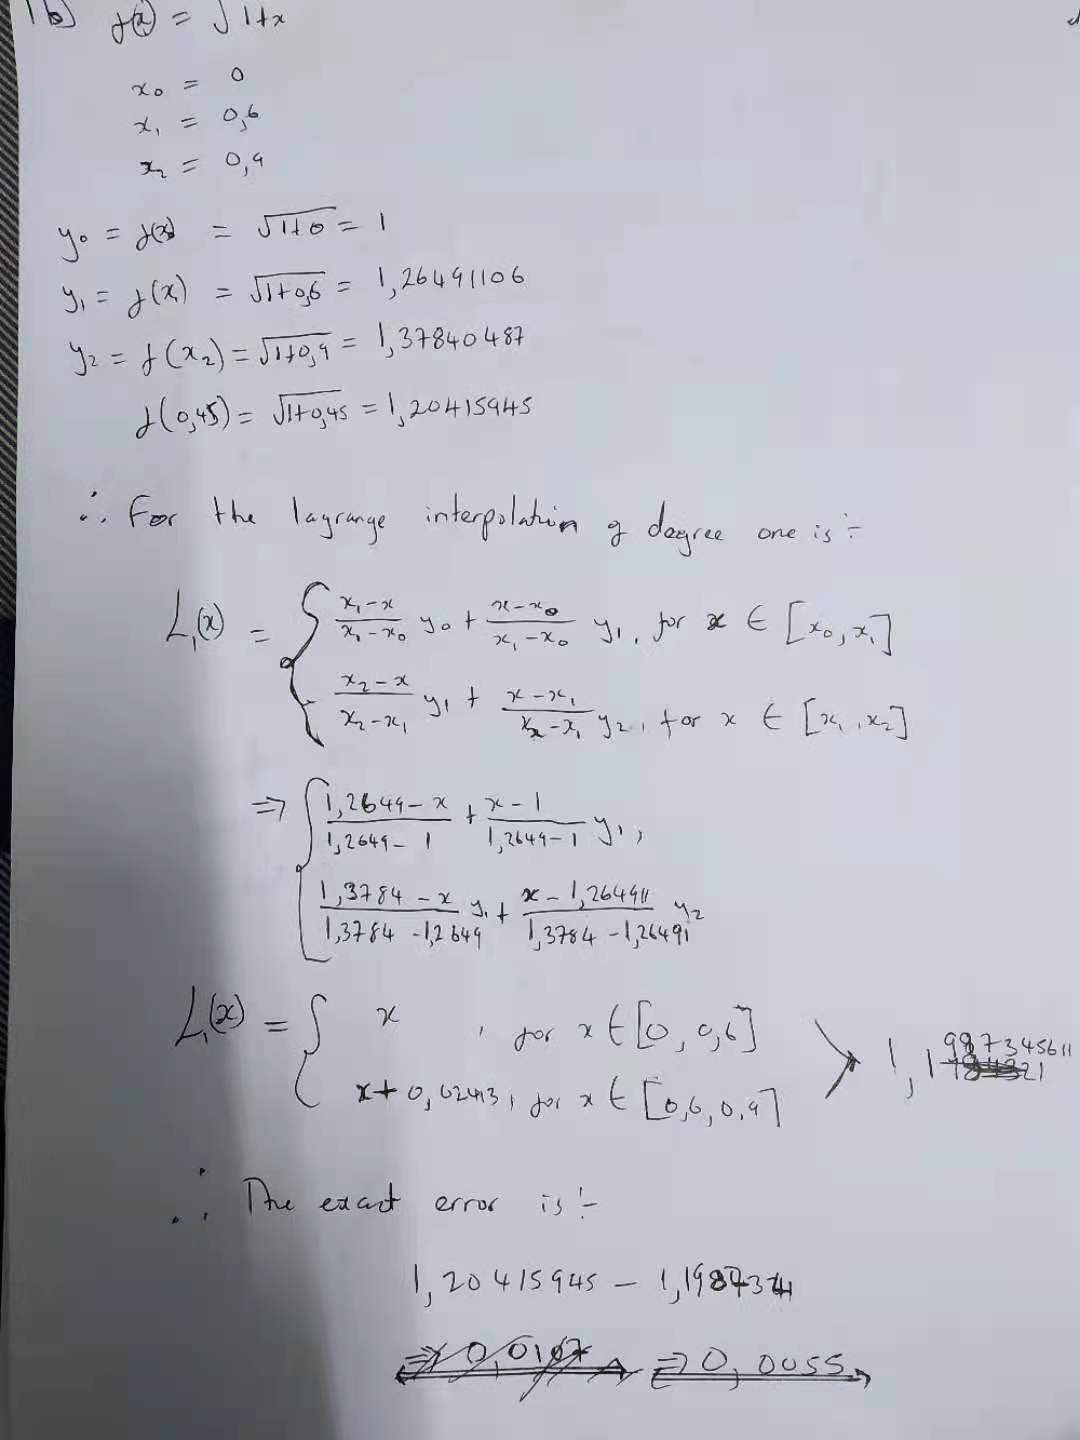 1b) f(x) = √1+x
x₀ = 0
x₁ = 0,6
x₂ = 0,9
y₀ = f(x₀) = √1+0 = 1
y₁ = f(x₁) = √1+0,6 = 1,26491106
y₂ = f(x₂) = √1+0,9 = 1,37840487
f(0,45) = √1+0,45 = 1,20415945
∴ For the lagrange interpolation of degree one is :-
L₁(x) = { (x₁-x)/(x₁-x₀) y₀ + (x-x₀)/(x₁-x₀) y₁, for x ∈ [x₀, x₁]
(x₂-x)/(x₂-x₁) y₁ + (x-x₁)/(x₂-x₁) y₂, for x ∈ [x₁, x₂]
⇒ { (1,2649-x)/(1,2649-1) + (x-1)/(1,2649-1) y₁,
(1,3784-x)/(1,3784-1,2649) y₁ + (x-1,264911)/(1,3784-1,26491) y₂
L₁(x) = { x , for x ∈ [0, 0,6]
x + 0,02413, for x ∈ [0,6, 0,9] > 1,1
∴ The exact error is :-
1,20415945 -
⇒ 0,0107 ⇒ 0,0055